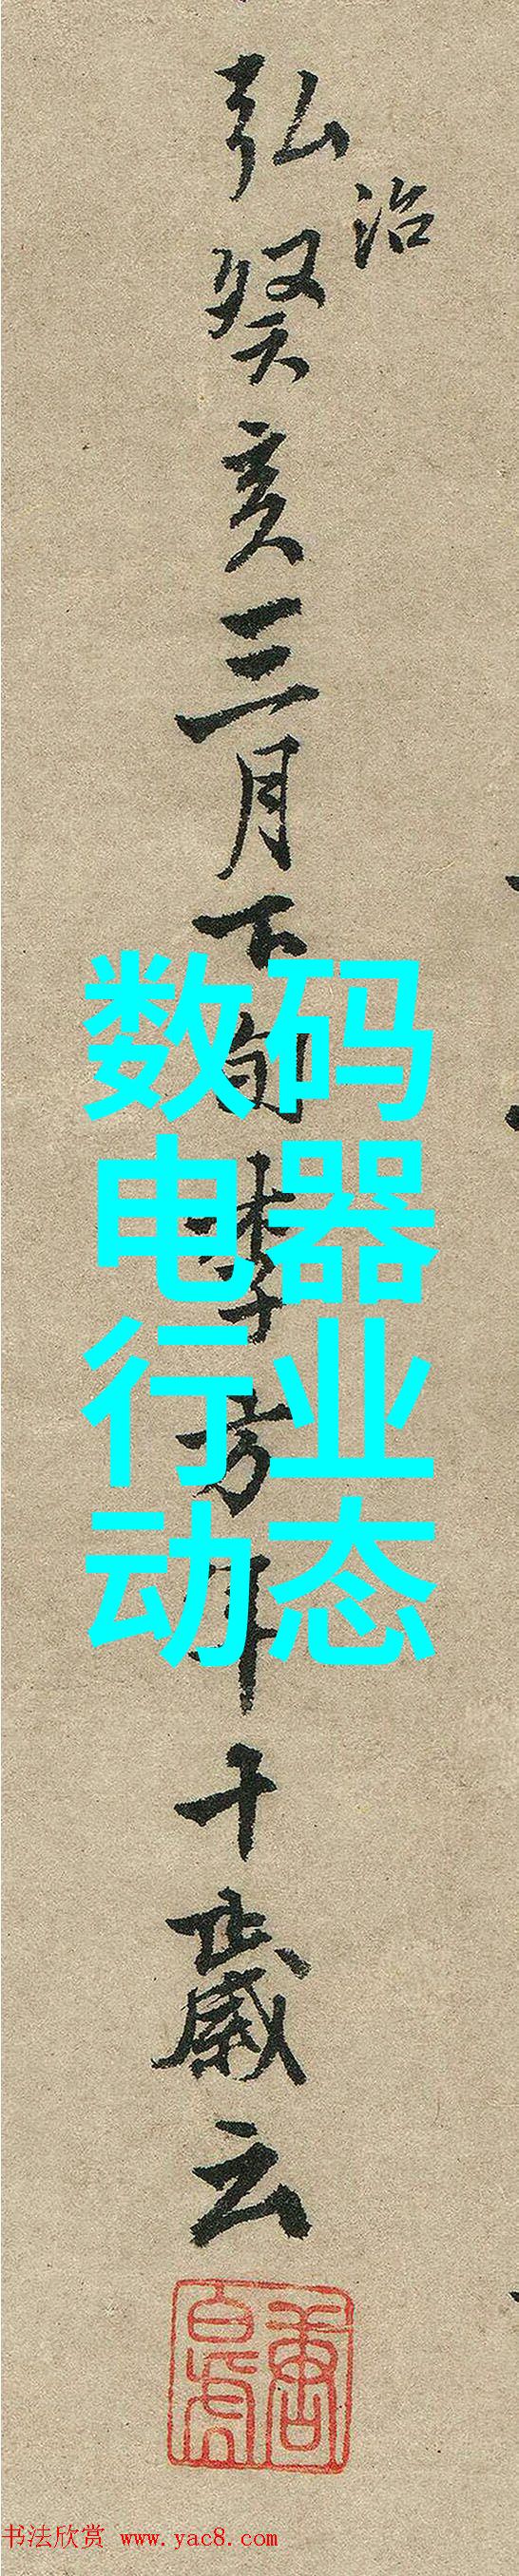 弘治癸亥三月下旬李方年十歲云
数码
电器
行业
动态
唐寅
书法欣赏 www.yac8.com